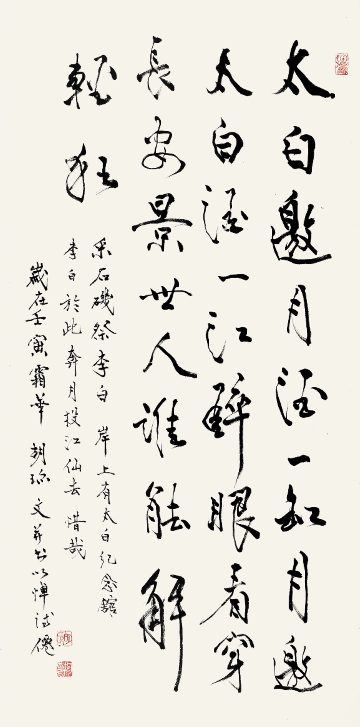 太白邀月酒一缸月邀
太白酒一江醉眼看穿
長安景世人誰能解
輕狂
采石磯祭李白 岸上有太白紀念館
李白於此奔月投江仙去 惜哉
歲在壬寅霜華 胡 文并書以悼詩僊